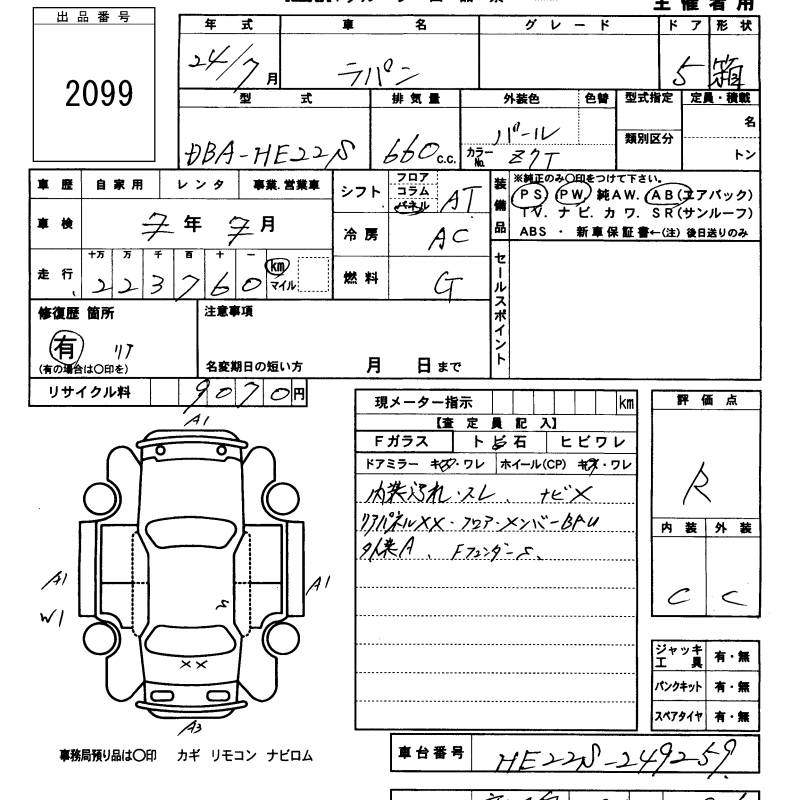 主催者用
出品番号
2099
年式 車名 グレード ドア 形状
24/7月 ラパン 5 箱
型式 排気量 外装色 色替 型式指定 定員・積載
類別区分 名
トン
DBA-HE22S 660 C.C. パール
カラーNo. Z7T
車歴 自家用 レンタ 事業.営業車
車検 7年 7月
走行 十万 万 千 百 十 一
223760 km マイル
シフト フロア コラム パネル AT
冷房 AC
燃料 G
装備品
※純正のみ○印をつけて下さい。
PS PW 純AW. AB(エアバック)
TV. ナビ. カワ. SR(サンルーフ)
ABS ・ 新車保証書←(注) 後日送りのみ
セールスポイント
修復歴 箇所
有 リア
(有の場合は○印を)
注意事項
名変期日の短い方 月 日まで
リサイクル料 9070円
現メーター指示 km
【査定員記入】
Fガラス トビ石 ヒビワレ
ドアミラー キズ・ワレ ホイール(CP) キズ・ワレ
内装汚れ・スレ、ナビX
リアパネルXX・フロア・メンバーBPU
外装A、Fフェンダー S、
評価点
R
内装 外装
C C
A1
A1
W1
A1
XX
A3
ジャッキ工具 有・無
パンクキット 有・無
スペアタイヤ 有・無
事務局預り品は○印 カギ リモコン ナビロム
車台番号 HE22S-249259